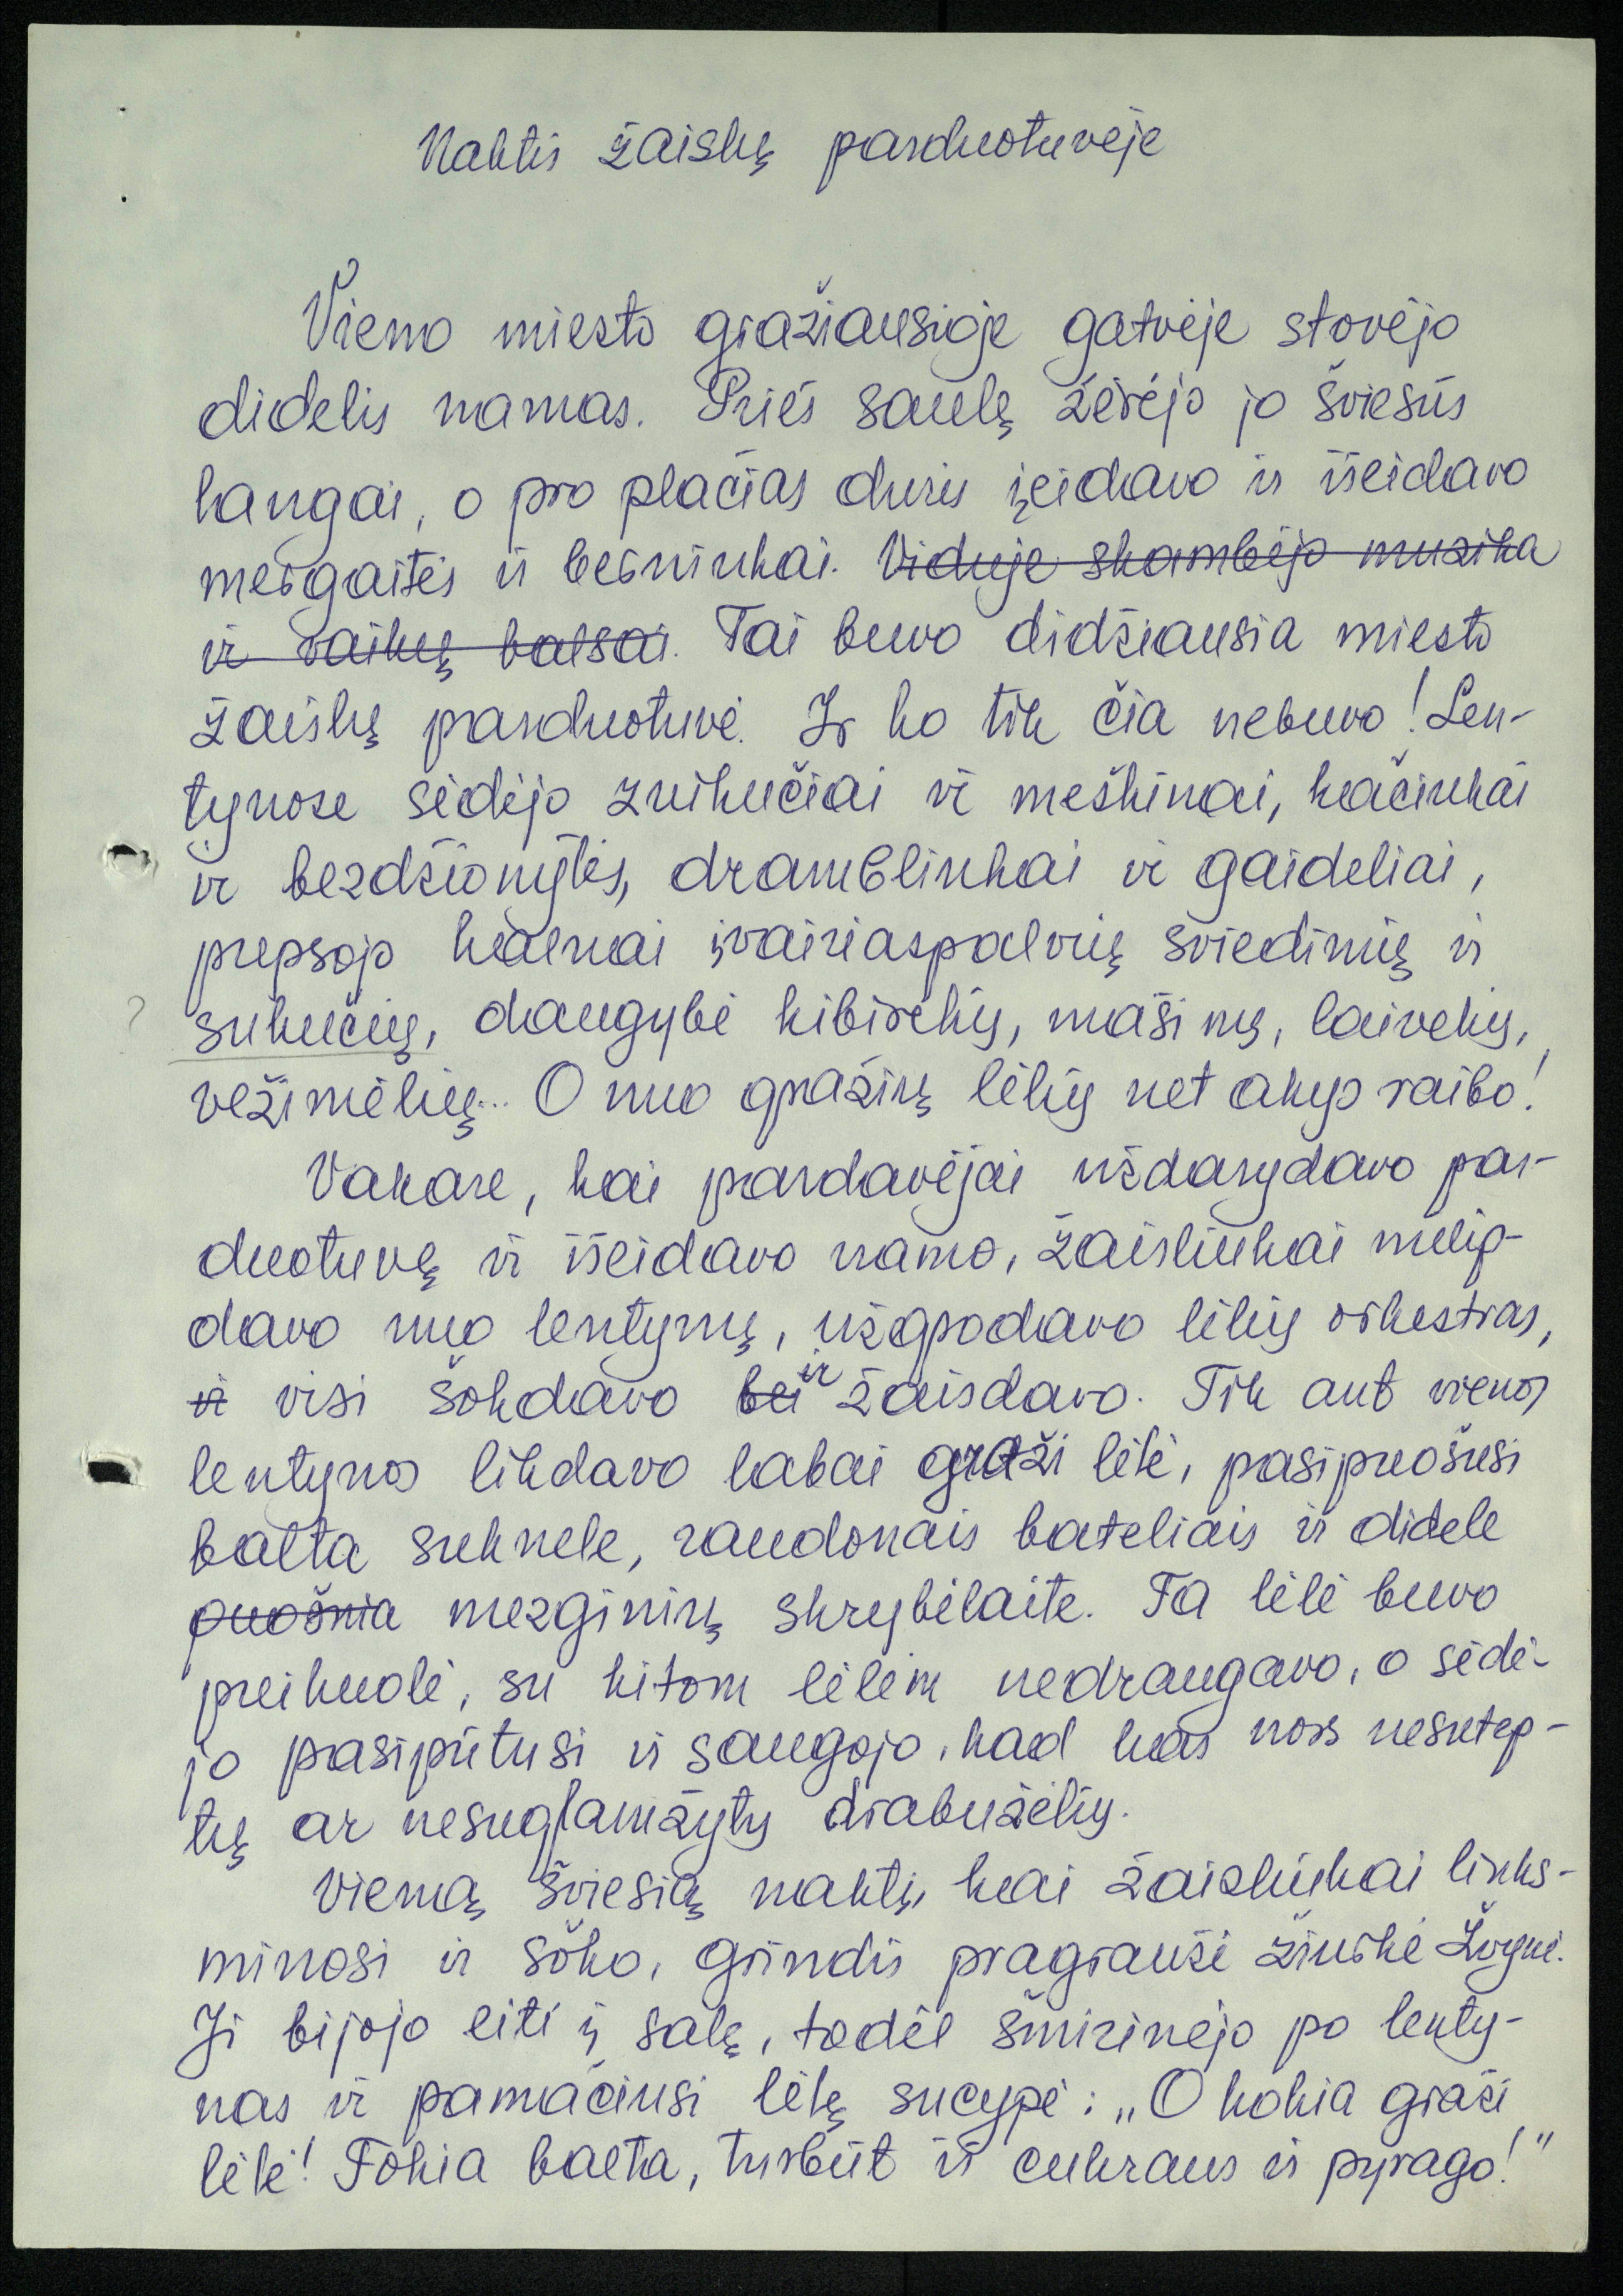 Naktis žaislų parduotuvėje
Vieno miesto gražiausioje gatvėje stovėjo
didelis namas. Prieš saulę žėrėjo jo šviesūs
langai, o pro plačias duris įeidavo ir išeidavo
mergaitės ir berniukai. Viduje skambėjo muzika
ir vaikų balsai. Tai buvo didžiausia miesto
žaislų parduotuvė. Ir ko tik čia nebuvo! Len-
tynose sėdėjo zuikučiai ir meškinai, kačiukai
ir bezdžionytės, drambliukai ir gaideliai,
pūpsojo kalnai įvairiaspalvių sviedinių ir
? sukučių, daugybė kibirėlių, mašinų, laivelių,
vežimėlių... O nuo gražių lėlių net akys raibo!
Vakare, kai pardavėjai uždarydavo par-
duotuvę ir išeidavo namo, žaisliukai nulip-
davo nuo lentynų, užgrodavo lėlių orkestras,
ir visi šokdavo bei ir žaisdavo. Tik ant vienos
lentynos likdavo labai graži lėlė, pasipuošusi
balta suknele, raudonais bateliais ir didele
puošnia mezginių skrybėlaite. Ta lėlė buvo
puikuolė, su kitom lėlėm nedraugavo, o sėdė-
jo pasipūtusi ir saugojo, kad kas nors nesutep-
tų ar nesuglamžytų drabužėlių.
Vieną šviesią naktį, kai žaisliukai links-
minosi ir šoko, grindis pragraužė žiurkė Žvynė.
Ji bijojo eiti į salę, todėl šmirinėjo po lenty-
nas ir pamačiusi lėlę sucypė: „O kokia graži
lėlė! Tokia balta, turbūt iš cukraus ir pyrago!”